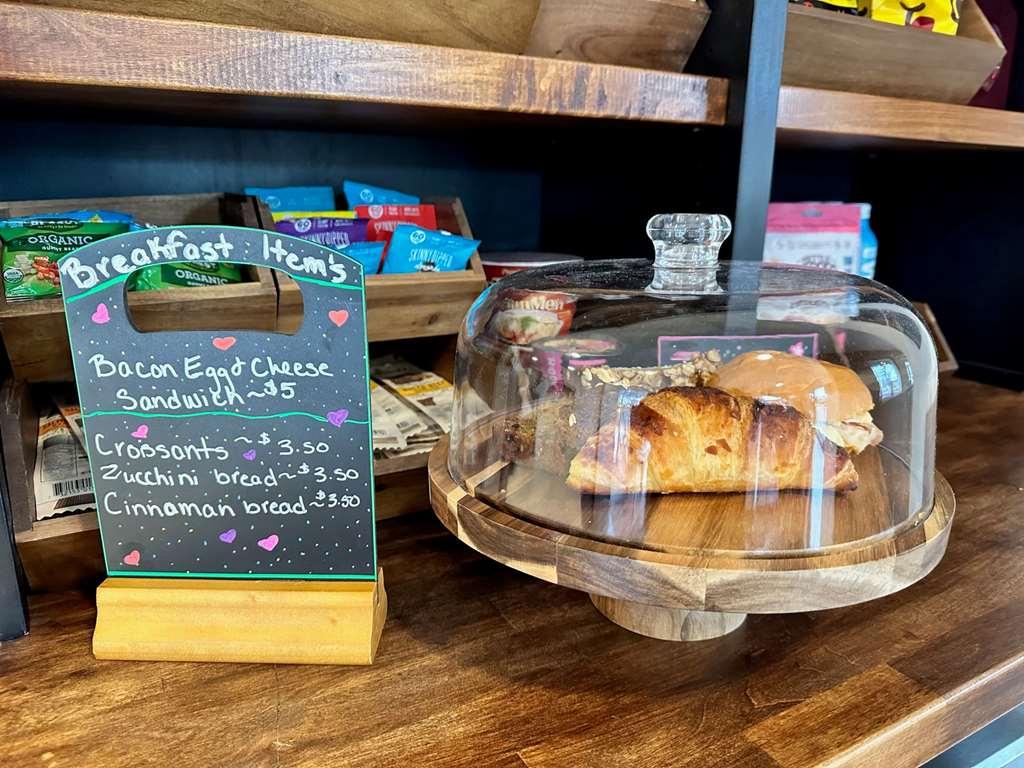 Breakfast Item's
Bacon Egg & Cheese
Sandwich ~ $5
Croissants ~ $3.50
Zucchini bread ~ $3.50
Cinnaman bread ~ $3.50
ORGANIC
ORGANIC
SKINNYDIPPED